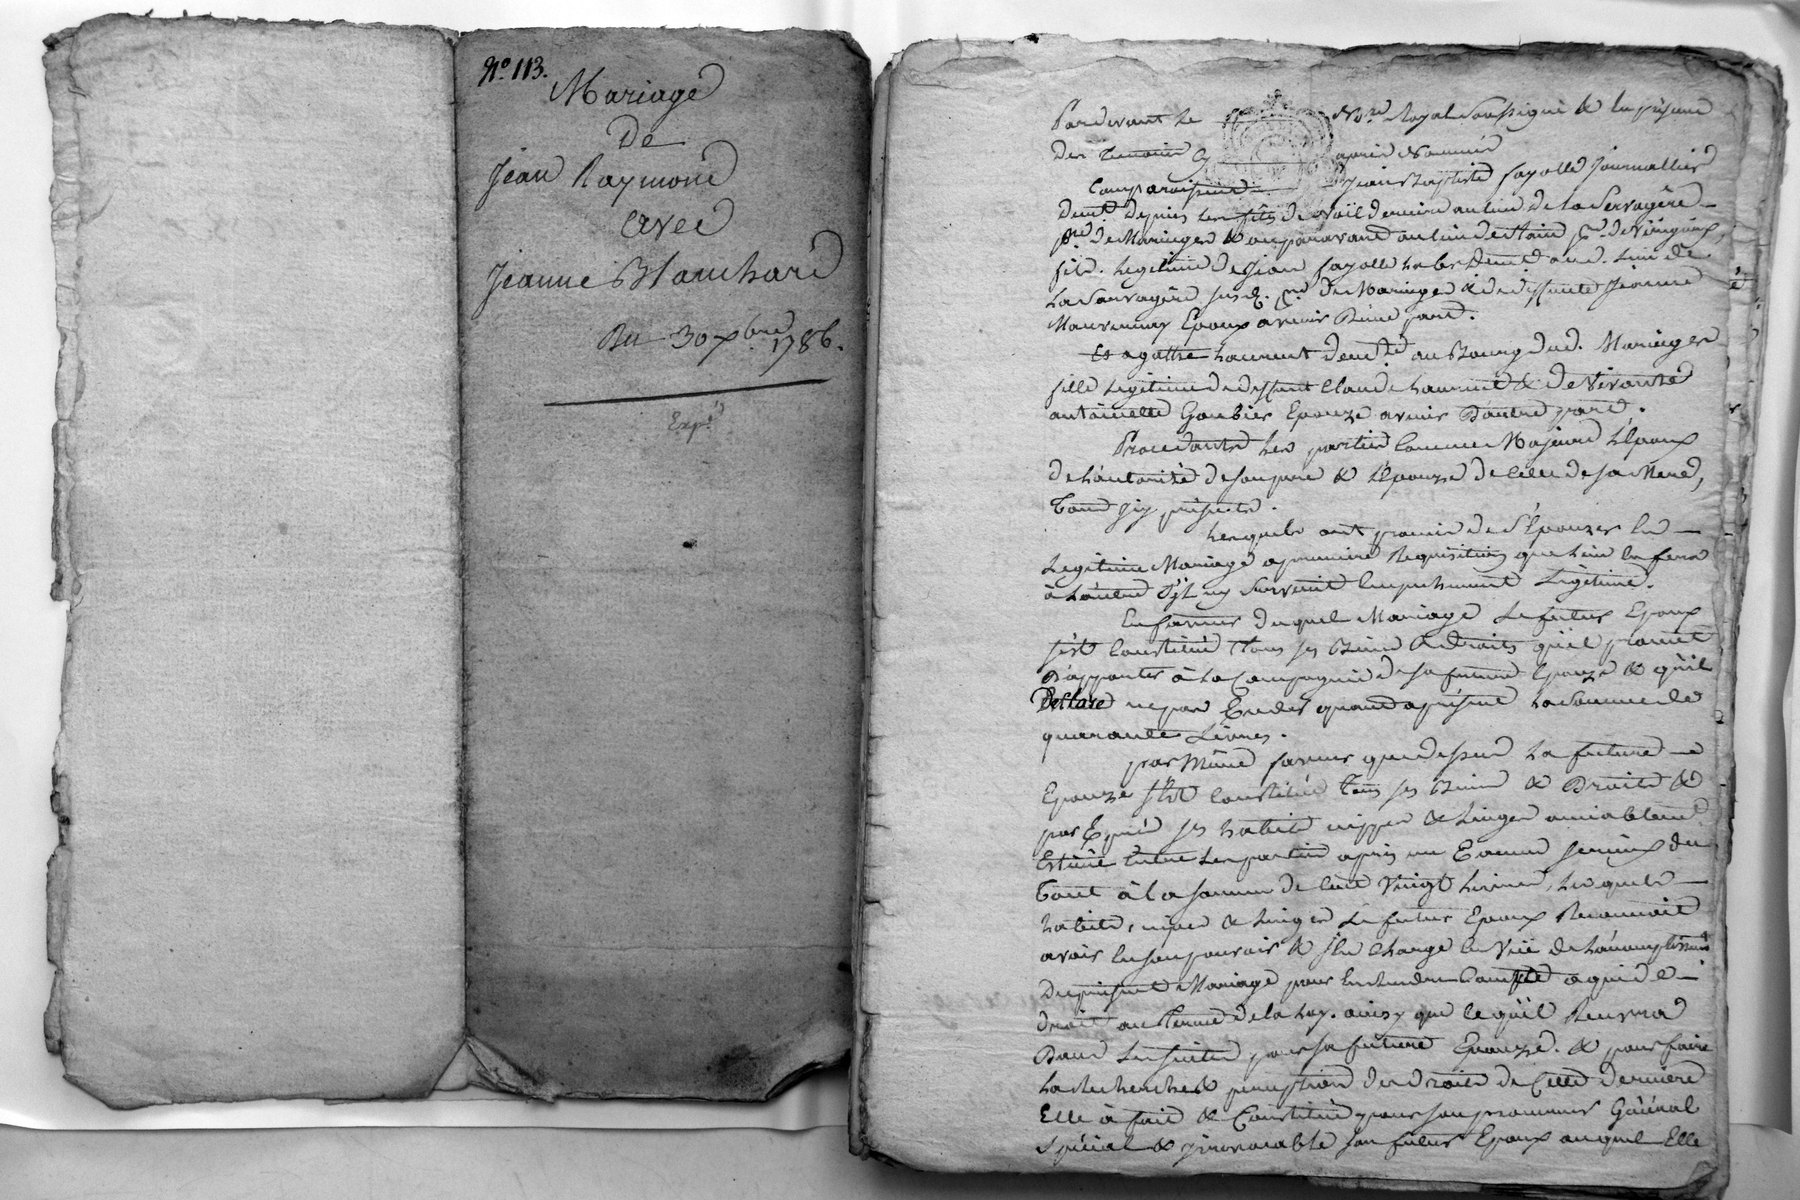 N.º 113.
Mariage
De
Jean Raymond
avec
Jeanne Blanchard
Du 30 xbre 1786.
Expé
Pardevant Le Nore. Royal Soussigné & En présence
des Temoins apres Nommés
Comparoissent Jean Baptiste fayolle Journallier
demt. depuis les fêtes de Noël derniere au lieu de La Servagere
psse. de Maringes & auparavant au lieu de psse. de
fils Legitime de Jean fayolle Laber. demt. aud. Lieu de
La Sauvagere susd. psse. de Maringes & de deffunte Jeanne
Epoux avenir D'une part.
Et agathe Laurent demte. au Bourg dud. Maringes
fille Legitime de deffunt Claude Laurent & de Vivante
antoinette Goubier Epouze avenir D'autre part.
Procedantes Les parties Comme Majeurs L'Epoux
de L'autorité de son pere & L'Epouze de Celle de sa Mere,
Tous ici présents.
Lesquels ont promis de S'Epouzer En
Legitime Mariage a premiere Requisition que L'un En fera
à L'autre S'il ny Survient Empechement Légitime.
En faveur duquel Mariage Le futur Epoux
s'est Constitué Tous ses Biens & droits qu'il promet
D'apporter à La Compagnie de sa future Epouze & qu'il
Declare ne pas Exceder quand a présent La Somme de
quarante Livres.
par Même faveur que dessus La future
Epouze s'est Constitué Tous ses Biens & Droits &
par Exprès ses habits nippes & Linges amiablement
Estimé Entre Les parties apres un Examen serieux du
Tout à La somme de Cent Vingt Livres, Lesquels
habits, nipes & Linges Le futur Epoux Reconnoit
avoir En son pouvoir & s'En Charge En Vüe de L'accomplissement
Du présent Mariage pour En rendre Compte a qui de
droit au Terme de la Loy. ainsy que Ce qu'il Recevra
Dans La suitte pour sa future Epouze. & pour faire
La Recherche & perception des droits de Cette derniere
Elle à fait & Constitué pour son procureur Général
Spécial & jrrevocable son futur Epoux auquel Elle